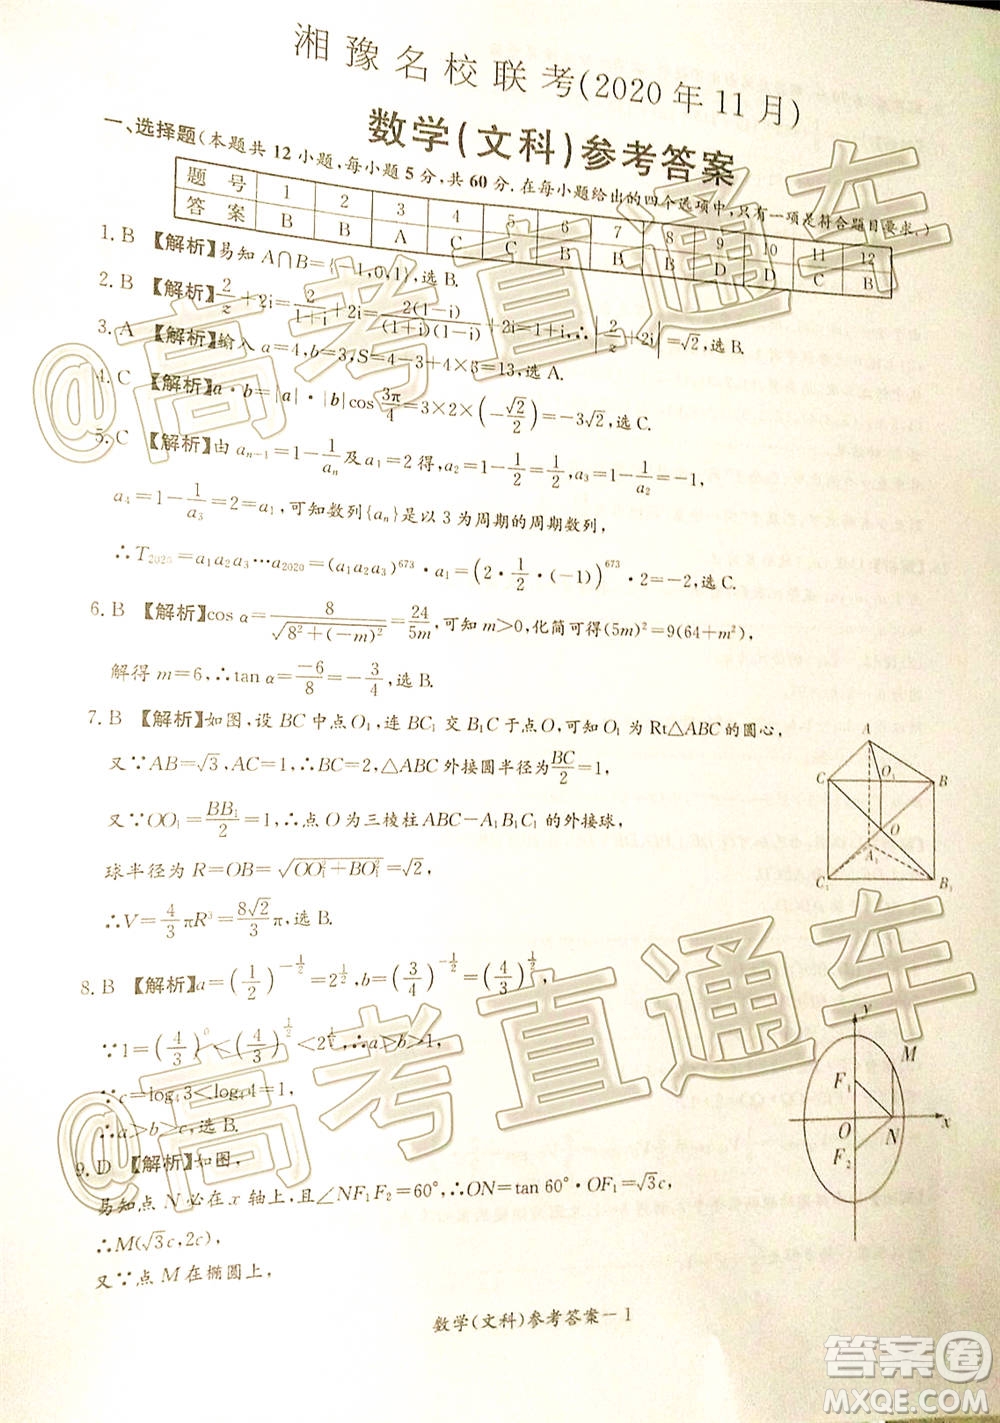 湘豫名校联考(2020年11月)
数学(文科)参考答案
一、选择题(本题共12小题,每小题5分,共60分.在每小题给出的四个选项中,只有一项是符合题目要求.)
题号 1 2 3 4 5 6 7 8 9 10 11 12
答案 B B A C C B B B D D C B
1. B 【解析】易知A∩B={-1,0,1},选B.
2. B 【解析】2/z+2i=2/(1+i)+2i=2(1-i)/((1+i)(1-i))+2i=1+i,∴|2/z+2i|=√2,选B.
3. A 【解析】输入a=4,b=3,S=4-3+4×3=13,选A.
4. C 【解析】a·b=|a|·|b|cos 3π/4=3×2×(-√2/2)=-3√2,选C.
5. C 【解析】由a_{n-1}=1-1/a_n及a_1=2得,a_2=1-1/a_1=1/2,a_3=1-1/a_2=-1,
a_4=1-1/a_3=2=a_1,可知数列{a_n}是以3为周期的周期数列,
∴T_2020=a_1a_2a_3…a_2020=(a_1a_2a_3)^673·a_1=(2·1/2·(-1))^673·2=-2,选C.
6. B 【解析】cos α=8/√(8²+(-m)²)=24/5m,可知m>0,化简可得(5m)²=9(64+m²),
解得m=6,∴tan α=-6/8=-3/4,选B.
7. B 【解析】如图,设BC中点O₁,连BC₁交B₁C于点O,可知O₁为Rt△ABC的圆心,
又∵AB=√3,AC=1,∴BC=2,△ABC外接圆半径为BC/2=1,
又∵OO₁=BB₁/2=1,∴点O为三棱柱ABC-A₁B₁C₁的外接球,
球半径为R=OB=√(OO₁²+BO₁²)=√2,
∴V=4/3πR³=8√2/3π,选B.
A
C O₁ B
O
A₁
C₁ B₁
8. B 【解析】a=(1/2)^{-1/2}=2^{1/2},b=(3/4)^{-1/2}=(4/3)^{1/2},
∵1=(4/3)^0<(4/3)^{1/2}<2^{1/2},∴a>b>1,
∵c=log₄3<log₄4=1,
∴a>b>c,选B.
9. D 【解析】如图,
易知点N必在x轴上,且∠NF₁F₂=60°,∴ON=tan 60°·OF₁=√3c,
∴M(√3c,2c),
又∵点M在椭圆上,
y
M
F₁
O N x
F₂
数学(文科)参考答案-1
@高考直通车
@高考直通车
答案圈
MXQE.COM